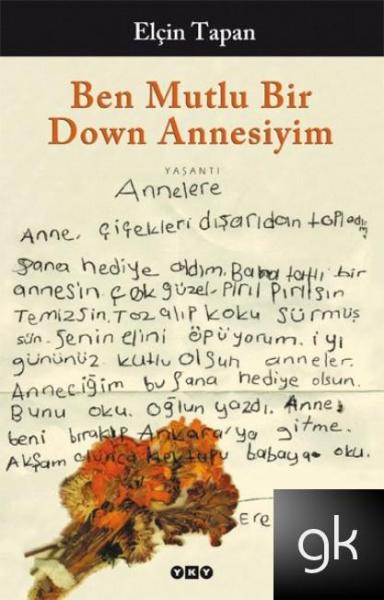 Elçin Tapan
Ben Mutlu Bir
Down Annesiyim
YAŞANTI
Annelere
Anne, çiçekleri dışarıdan topladım
Sana hediye aldım. Bana tatlı bir
annesin çok güzel. Pırıl pırılsın
Temizsin. Toz alıp koku sürmüş
sün. Senin elini öpüyorum. iyi
gününüz kutlu olsun anneler.
Anneciğim bu sana hediye olsun.
Bunu oku. Oğlun yazdı. Anne,
beni bırakıp Ankara'ya gitme.
Akşam olunca mektupu babaya oku.
Ere
YKY
gk